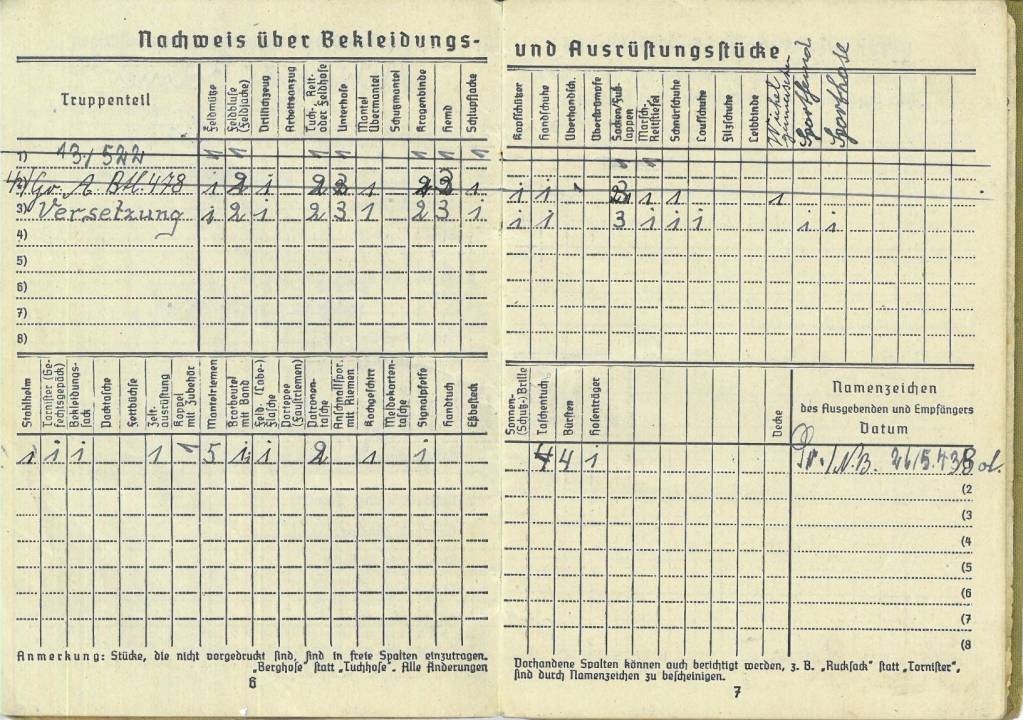 Nachweis über Bekleidungs-
Truppenteil
Feldmütze
Feldbluse (Feldjacke)
Drillichzeug
Arbeitsanzug
Tuch- Reit- oder Feldhose
Unterhose
Mantel Übermantel
Schutzmantel
Kragenbinde
Hemd
Schlupfjacke
1) 13./522 1 1 1 1 1 1 1
2) Gr. A. Btl. 478 i 2 i 2 3 1 2 3 1
3) Versetzung i 2 i 2 3 1 2 3 i
4)
5)
6)
7)
8)
Stahlhelm
Tornister (Gefechtsgepäck)
Bekleidungssack
Packtasche
Fettbüchse
Zeltausrüstung
Koppel mit Zubehör
Mantelriemen
Brotbeutel mit Band
Feld- (Labe-) Flasche
Portepee (Faustriemen)
Patronentasche
Anschnallspor. mit Riemen
Kochgeschirr
Meldekartentasche
Signalpfeife
Handtuch
Eßbesteck
1 i i 1 1 5 i i 2 1 i
Anmerkung: Stücke, die nicht vorgedruckt sind, sind in freie Spalten einzutragen.
„Berghose" statt „Tuchhose". Alle Änderungen
6
und Ausrüstungsstücke
Kopfschützer
Handschuhe
Überhandsch.
Überstrümpfe
Socken/Fußlappen
Marsch- Reitstiefel
Schnürschuhe
Laufschuhe
Filzschuhe
Leibbinde
Wickelgamaschen
Sporthemd
Sporthose
1 1
i i 2 1 1 1
i i 3 i i i i i
Sonnen- (Schutz-) Brille
Taschentuch
Bürsten
Hosenträger
Decke
Namenzeichen
des Ausgebenden und Empfängers
Datum
4 4 1 26/5.43
(2
(3
(4
(5
(6
(7
(8
Vorhandene Spalten können auch berichtigt werden, z. B. „Rucksack" statt „Tornister",
sind durch Namenzeichen zu bescheinigen.
7